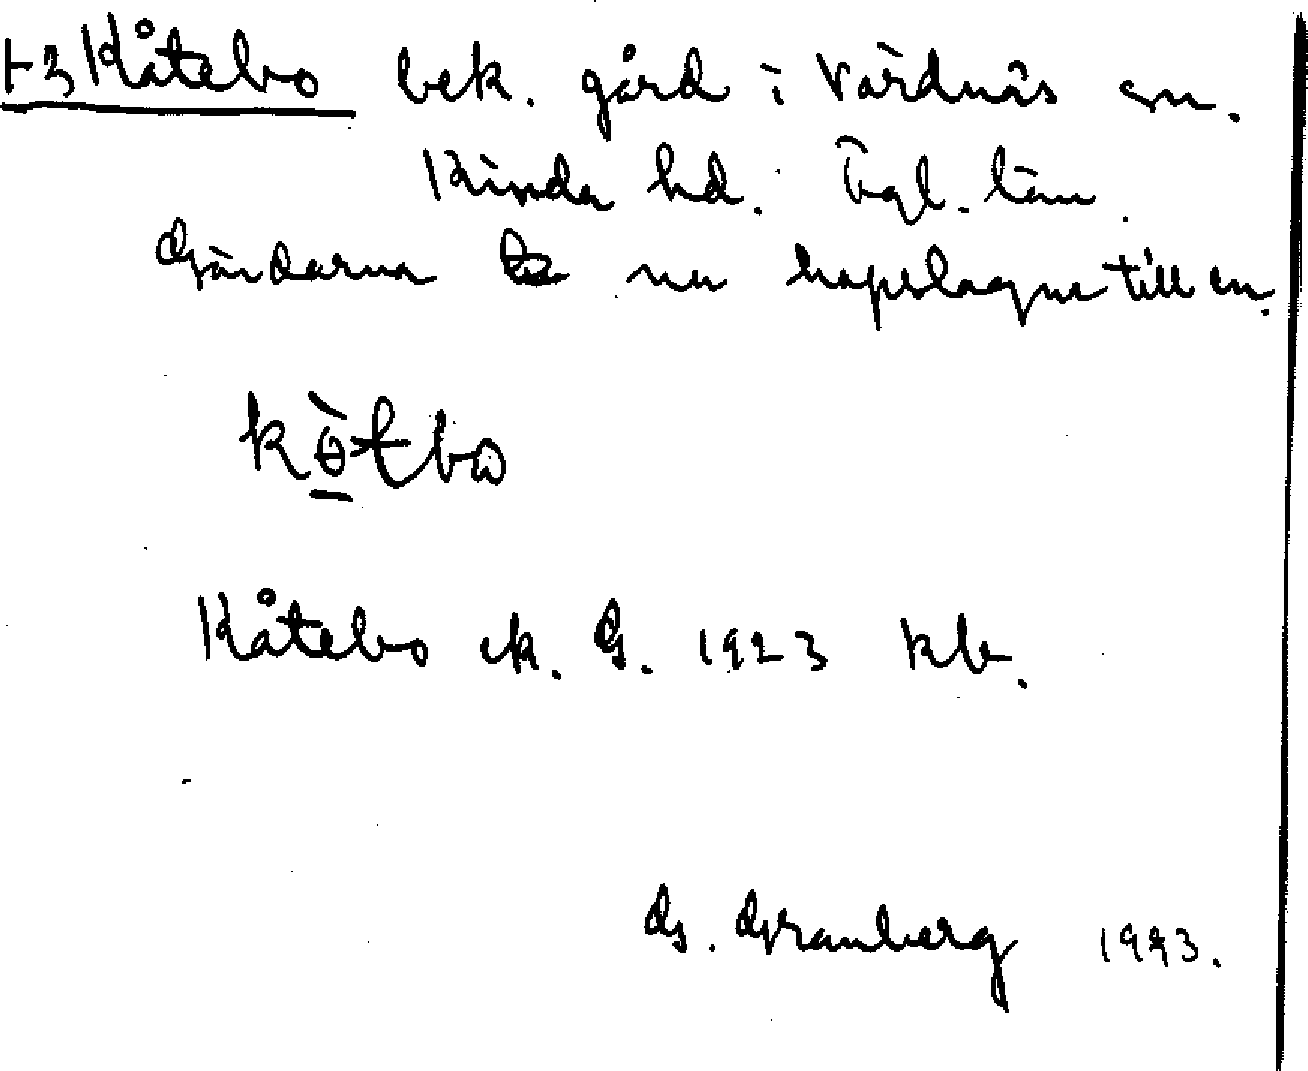 1-3 Kåtebo bek. gård i Vårdnäs sn.
Kinda hd. Ögl. län.
Gårdarna nu hopslagna till en.
Kåtebo ek. G. 1923 kb.
G. Granberg 1943.